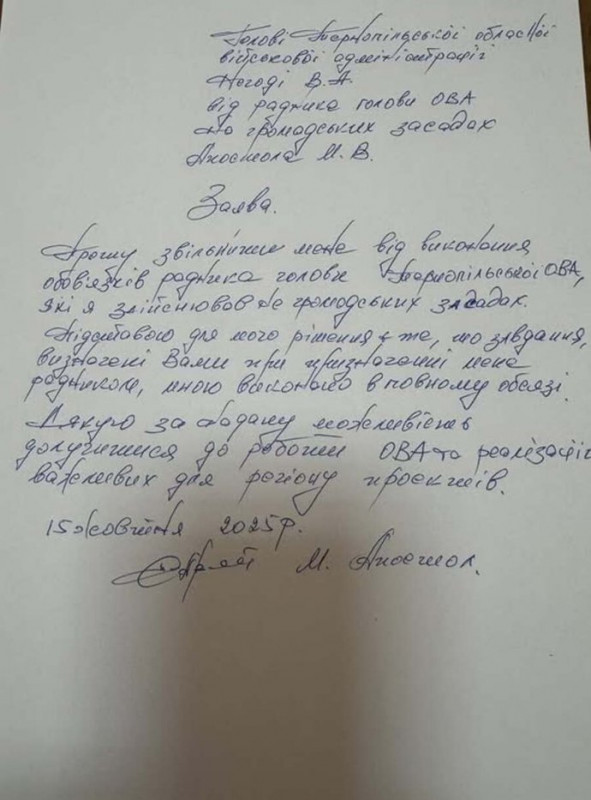 Голові Тернопільської обласної
військової адміністрації
Негоді В.А.
від радника голови ОВА
на громадських засадах
Апостола М.В.
Заява.
Прошу звільнити мене від виконання
обов'язків радника голови Тернопільської ОВА,
які я здійснював на громадських засадах.
Підставою для мого рішення є те, що завдання,
визначені Вами при призначенні мене
радником, мною виконано в повному обсязі.
Дякую за надану можливість
долучитися до роботи ОВА та реалізації
важливих для регіону проєктів.
15 жовтня 2025р.
М. Апостол.